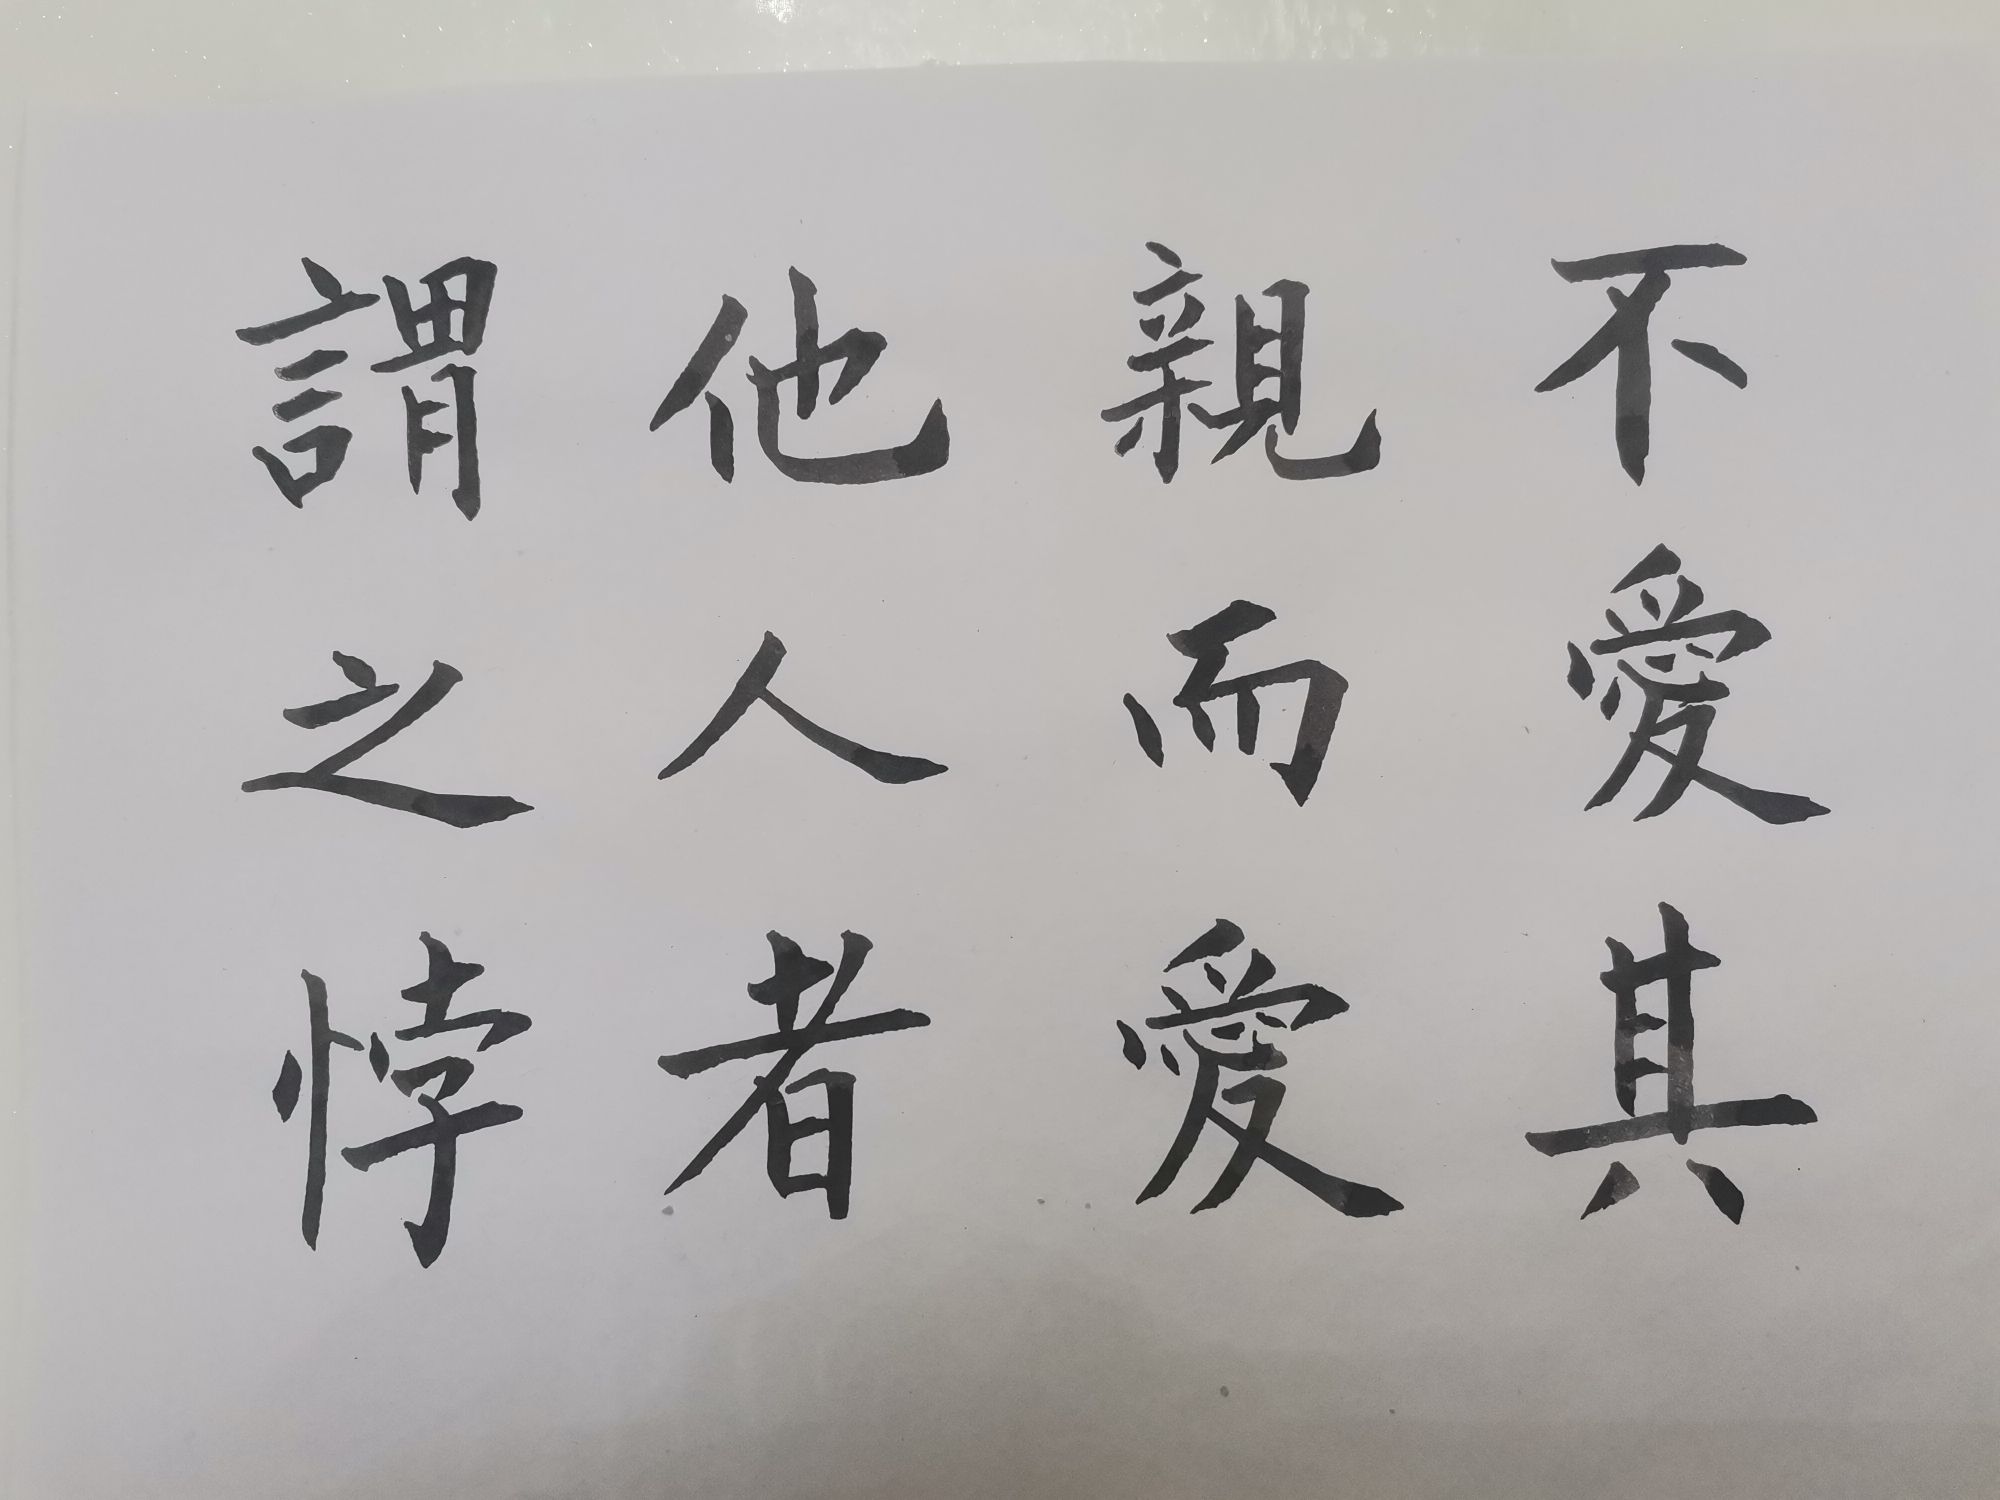 不愛其
親而愛
他人者
謂之悖